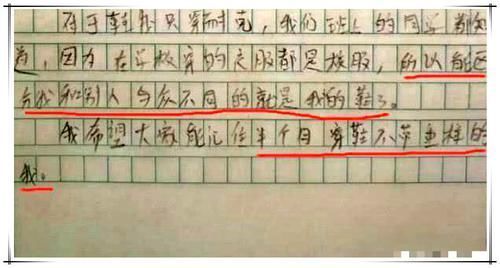 至于鞋我只穿耐克，我们班上的同学都知
道，因为在学校穿的衣服都是校服，所以能区
分我和别人与众不同的就是我的鞋了。
我希望大家能记住半个月穿鞋不带重样的
我。